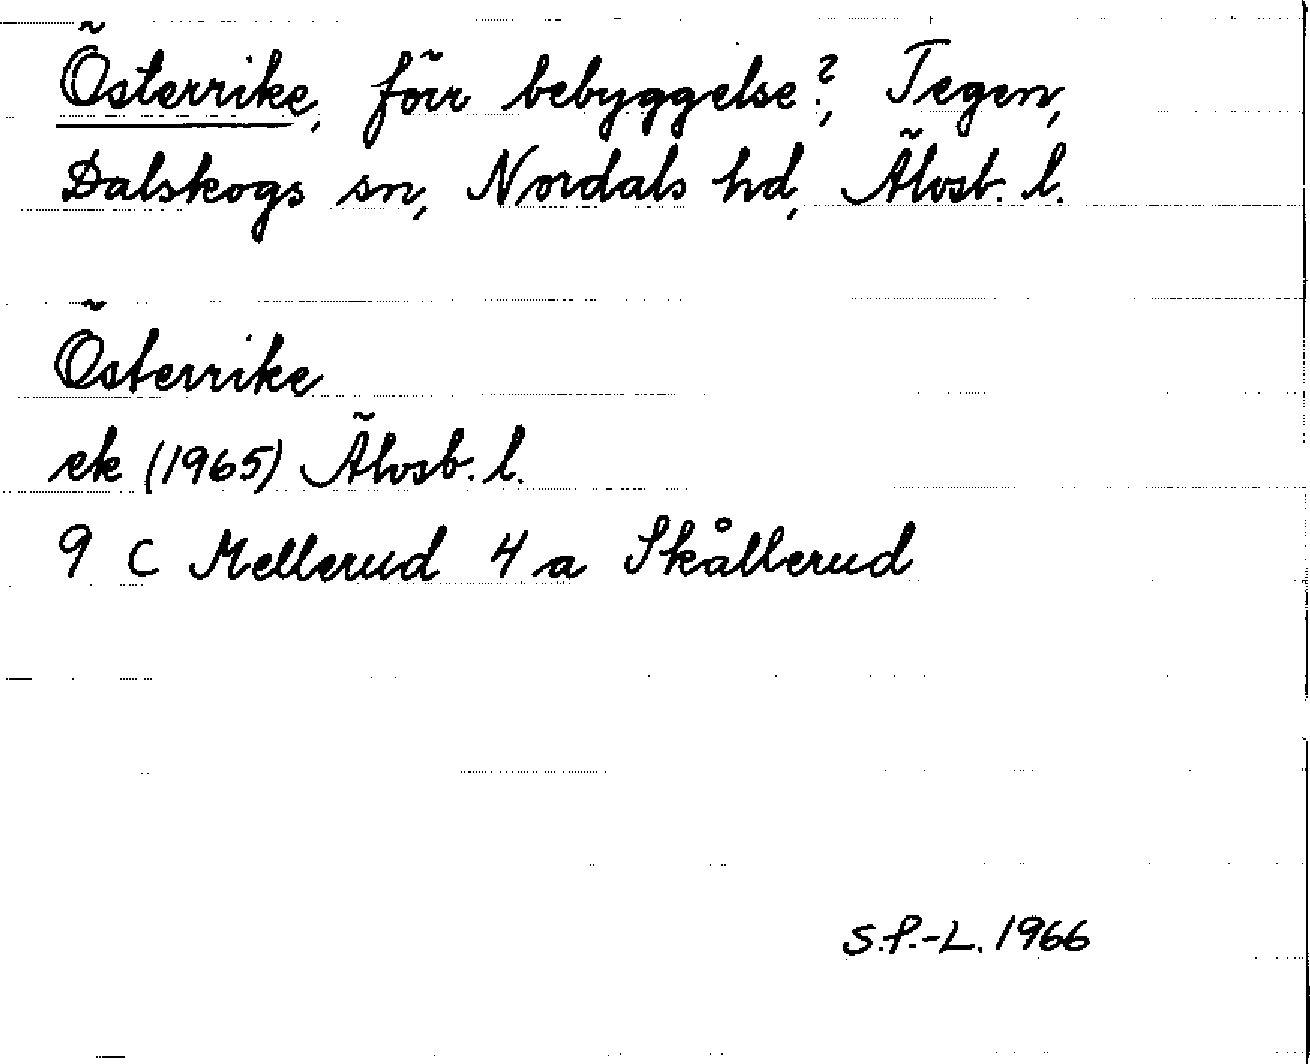 Österrike, förr bebyggelse?, Tegen,
Dalskogs sn, Nordals hd, Älvsb. l.
Österrike
ek (1965) Älvsb. l.
9 C Mellerud 4 a Skållerud
S.P.-L. 1966